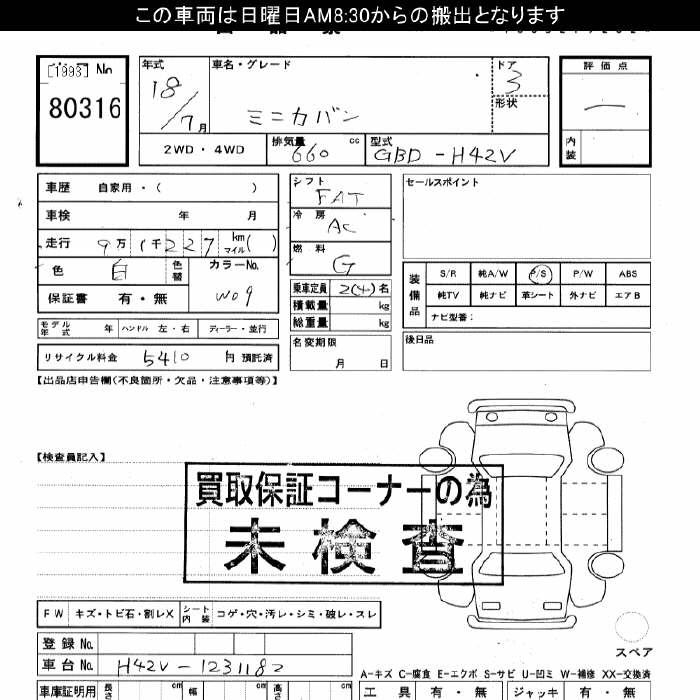 この車両は日曜日AM8:30からの搬出となります
[1993] No.
80316
年式 車名・グレード ドア 評価点
18 3
/7月 ミニカバン 形状 一
2WD・4WD 排気量 660 cc 型式 GBD-H42V 内装
車歴 自家用・( )
車検 年 月
走行 9万1千227 km マイル ( )
色 白 色替 カラーNo. W09
保証書 有・無
モデル年式 年 ハンドル 左・右 ディーラー・並行
リサイクル料金 5410 円 預託済
シフト FAT
冷房 AC
燃料 G
乗車定員 2(4)名
積載量 kg
総重量 kg
名変期限
月 日
セールスポイント
装備品 S/R 純A/W P/S P/W ABS
純TV 純ナビ 革シート 外ナビ エアB
ナビ型番:
後日品
【出品店申告欄(不良箇所・欠品・注意事項等)】
【検査員記入】
買取保証コーナーの為
未検査
FW キズ・トビ石・割レX シート内装 コゲ・穴・汚レ・シミ・破レ・スレ
登録No.
車台No. H42V-1231182
スペア
A-キズ C-腐食 E-エクボ S-サビ U-凹ミ W-補修 XX-交換済
車庫証明用 長さ cm 幅 cm 高さ cm
工具 有・無 ジャッキ 有・無